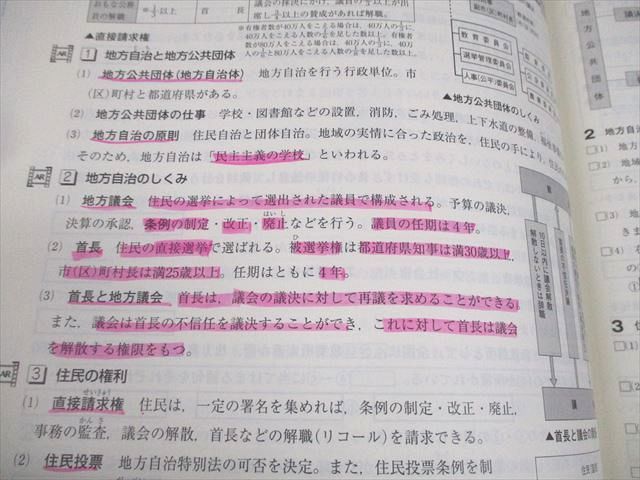 おもな公務
員の解職
1/3以上
首 長
議会の採決にかけ、議員の2/3以上が出
席し3/4以上の賛成があれば解職。
▲直接請求権
*有権者数が40万人をこえる場合は、40万人の1/3に、
40万人をこえる人数の1/6を足した数以上。有権者
数が80万人をこえる場合は、40万人の1/3に、
40万人の1/6と80万人をこえる人数の1/8を足した数以上。
教育委員会
選挙管理委員会
人事(公平)委員会
地方公共団体
▲地方公共団体のしくみ
AR 1 地方自治と地方公共団体
(1) 地方公共団体(地方自治体) 地方自治を行う行政単位。市
(区)町村と都道府県がある。
(2) 地方公共団体の仕事 学校・図書館などの設置，消防，ごみ処理，上下水道の整備，
(3) 地方自治の原則 住民自治と団体自治。地域の実情に合った政治を，住民の手により，
そのため，地方自治は「民主主義の学校」といわれる。
AR 2 地方自治のしくみ
(1) 地方議会 住民の選挙によって選出された議員で構成される。予算の議決，
はいし
決算の承認，条例の制定・改正・廃止などを行う。議員の任期は4年。
ひ
(2) 首長 住民の直接選挙で選ばれる。被選挙権は都道府県知事は満30歳以上，
市(区)町村長は満25歳以上。任期はともに4年。
(3) 首長と地方議会 首長は，議会の議決に対して再議を求めることができる。
また，議会は首長の不信任を議決することができ，これに対して首長は議会
を解散する権限をもつ。
10日以内に議会解散
解散しないときは辞職
議
▲首長と議会の
AR 3 住民の権利
せいきゅう
(1) 直接請求権 住民は，一定の署名を集めれば，条例の制定・改正・廃止，
かんさ
事務の監査，議会の解散，首長などの解職(リコール)を請求できる。
(2) 住民投票 地方自治特別法の可否を決定。また，住民投票条例を制
2 地方自
(1) 地方
から，
(2)
(3)
(4)
3 住
(1)
(2)